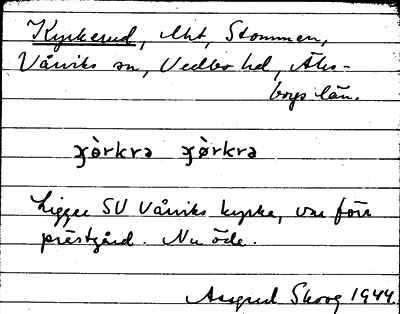 Kyrkerud, lht, Stommen,
Vårviks sn, Vedbo hd, Älvs-
borgs län.
ɣə̀rkra ɣø̀rkra
Ligger SV Vårviks kyrka, var förr
prästgård. Nu öde.
Assgrud Skoog 1944.